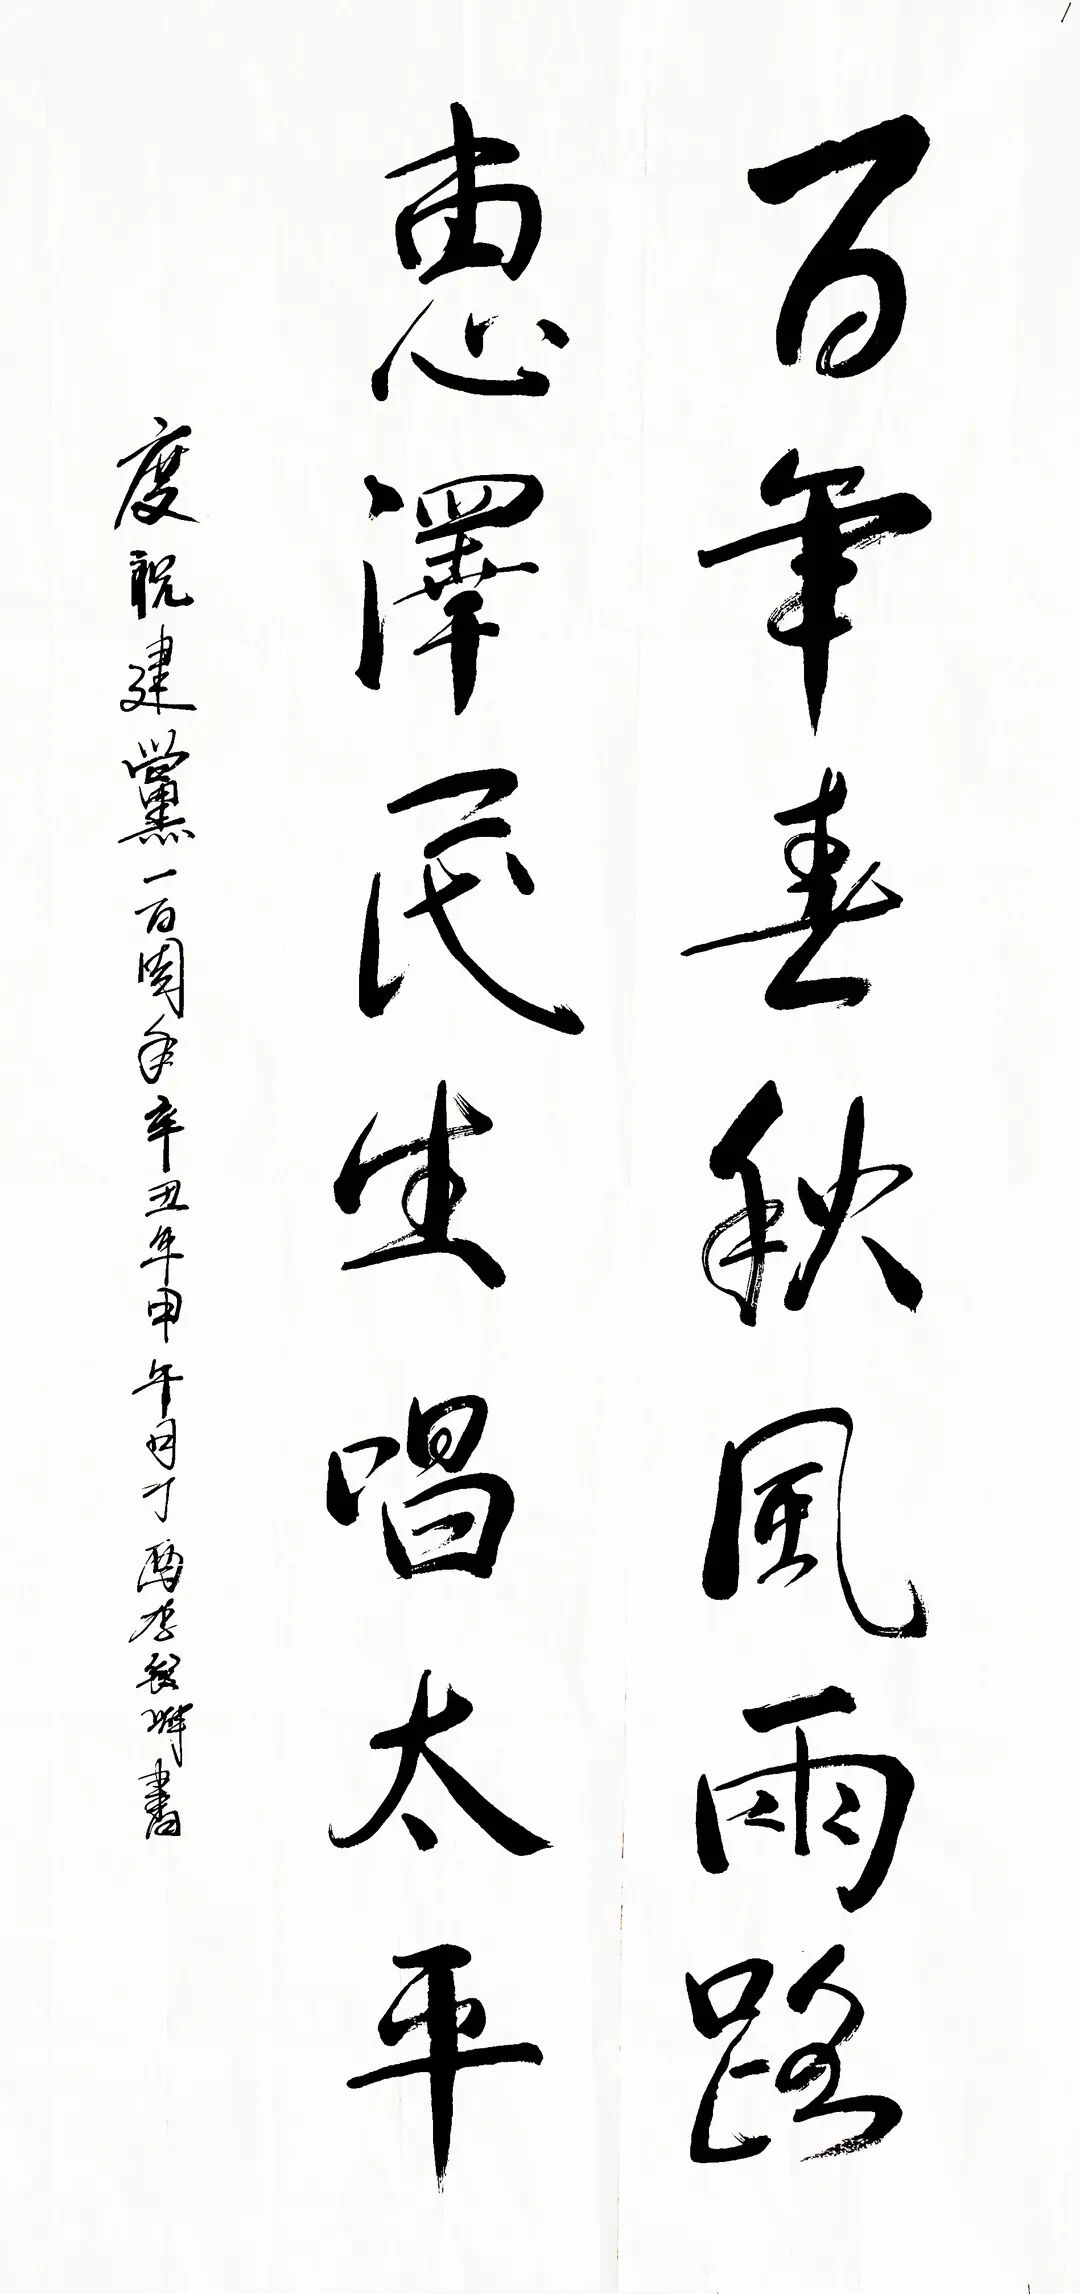 百年春秋風雨路
惠澤民生唱太平
慶祝建黨一百周年辛丑年甲午月丁酉李毅輝書